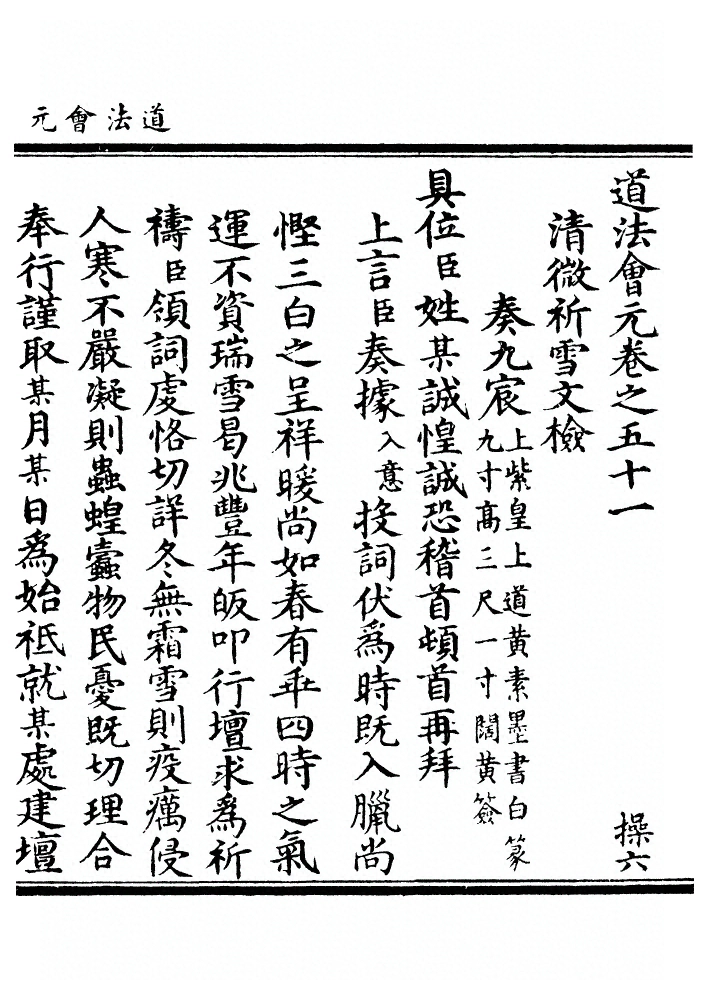 道法會元
道法會元卷之五十一 操六
清微祈雪文檢
奏九宸 上紫皇上道黃素墨書白篆
九寸高三尺一寸闊黃簽
具位臣姓某誠惶誠恐稽首頓首再拜
上言臣奏據入意投詞伏爲時既入臘尚
慳三白之呈祥暖尚如春有乖四時之氣
運不資瑞雪曷兆豐年皈叩行壇求爲祈
禱臣領詞虔恪切詳冬無霜雪則疫癘侵
人寒不嚴凝則蟲蝗蠹物民憂既切理合
奉行謹取某月某日爲始祗就某處建壇